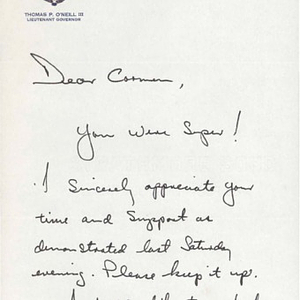 THOMAS P. O'NEILL III
LIEUTENANT GOVERNOR
Dear Carmen,
You were Super!
I Sincerely appreciate your
time and Support as
demonstrated last Saturday
evening. Please keep it up.